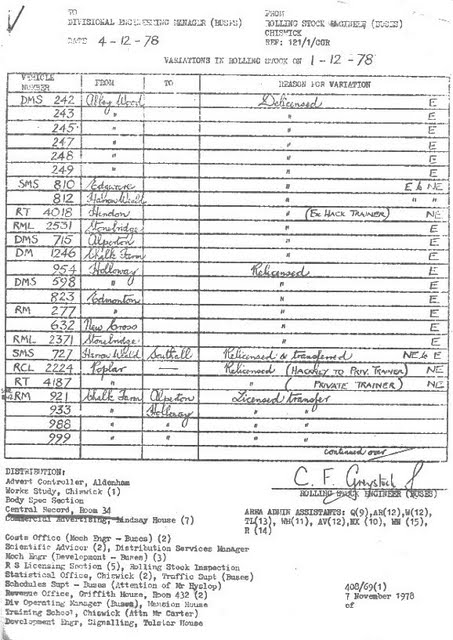 TO
DIVISIONAL ENGINEERING MANAGER (BUSES)
FROM
ROLLING STOCK ENGINEER (BUSES)
CHISWICK
REF: 121/1/CGR
DATE 4-12-78
VARIATIONS IN ROLLING STOCK ON 1-12-78
VEHICLE NUMBER FROM TO REASON FOR VARIATION
DMS 242 Abbey Wood Delicensed E
243 " " E
245 " " E
247 " " E
248 " " E
249 " " E
SMS 810 Edgware " E & NE
812 Harrow Weald " " "
RT 4018 Hendon " (Ex HACK TRAINER) NE
RML 2531 Stonebridge " E
DMS 715 Alperton " E
DM 1246 Chalk Farm " E
954 Holloway Relicensed E
DMS 598 " " E
823 Edmonton " E
RM 277 " " E
632 New Cross " E
RML 2371 Stonebridge " E
SMS 727 Harrow Weald Southall Relicensed & transferred NE & E
RCL 2224 Poplar — Relicensed (HACKNEY TO PRIV. TRAINER) NE
RT 4187 " " (PRIVATE TRAINER) NE
RM 921 Chalk Farm Alperton Licensed transfer
933 " Holloway " "
988 " " " "
999 " " " "
continued over
DISTRIBUTION:
Advert Controller, Aldenham
Works Study, Chiswick (1)
Body Spec Section
Central Record, Room 34
Commercial Advertising, Lindsay House (7)
Costs Office (Mech Engr - Buses) (2)
Scientific Advisor (2), Distribution Services Manager
Mech Engr (Development - Buses) (3)
R S Licensing Section (5), Rolling Stock Inspection
Statistical Office, Chiswick (2), Traffic Supt (Buses)
Schedules Supt - Buses (Attention of Mr Hyslop)
Revenue Office, Griffith House, Room 432 (2)
Div Operating Manager (Buses), Mansion House
Training School, Chiswick (Attn Mr Carter)
Development Engr, Signalling, Telstar House
C. F. Greystock
ROLLING STOCK ENGINEER (BUSES)
AREA ADMIN ASSISTANTS: Q(9),AH(12),W(12),
TL(13), WH(11), AV(12), NX (10), WN (15),
R (14)
408/69(1)
7 November 1978
of